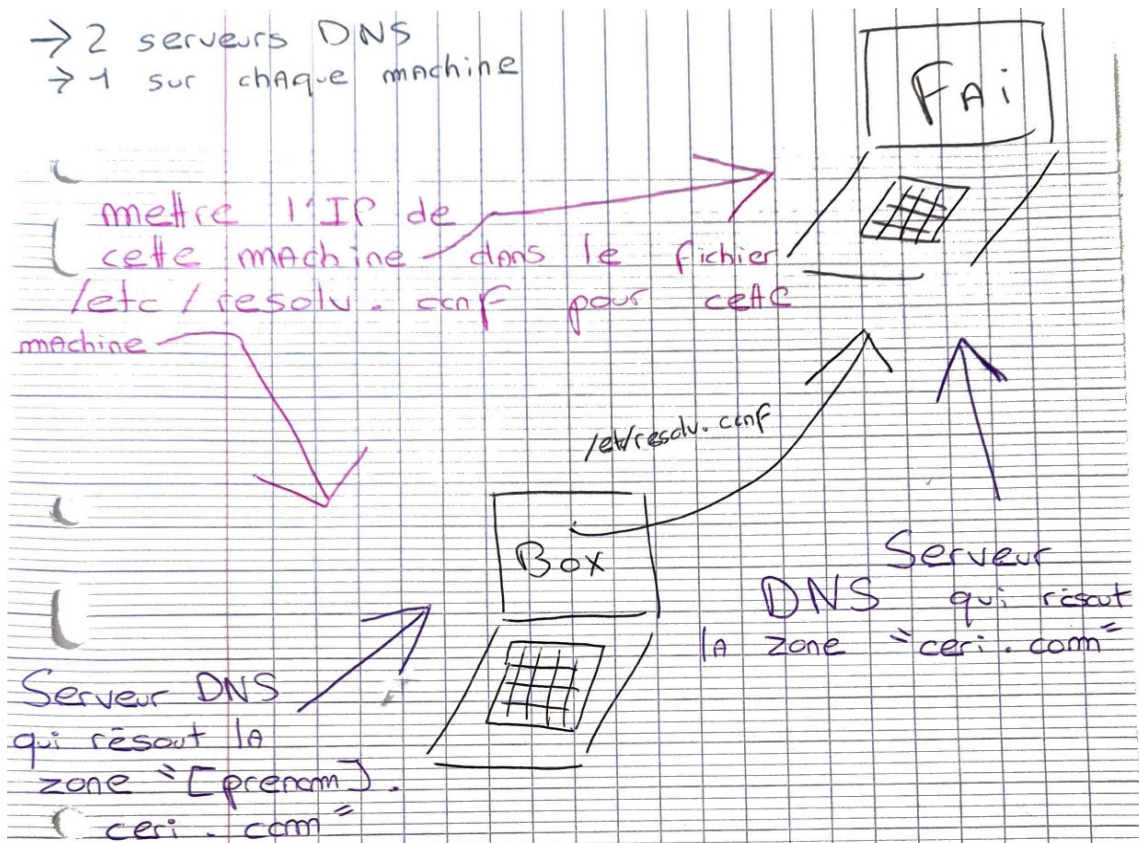 → 2 serveurs DNS
→ 1 sur chaque machine
FAi
mettre l'IP de
cette machine dans le fichier
/etc/resolv.conf pour cette
machine
/etc/resolv.conf
Box
Serveur
DNS qui résout
la zone "ceri.com"
Serveur DNS
qui résout la
zone "[prenom].
ceri.com"